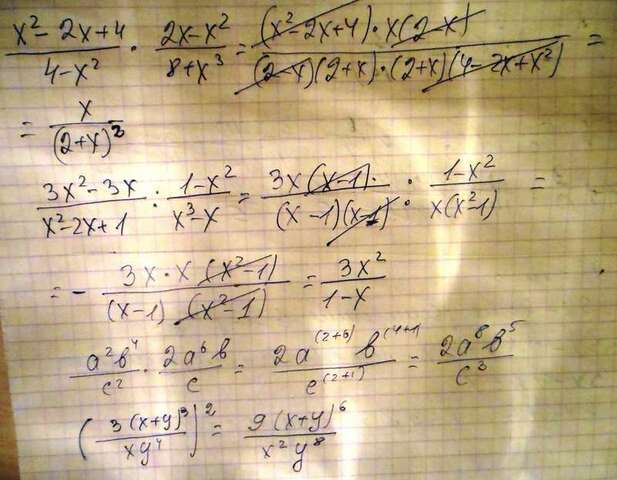 (x²-2x+4)/(4-x²) · (2x-x²)/(8+x³) = ((x²-2x+4)·x(2-x))/((2-x)(2+x)·(2+x)(4-2x+x²)) =
= x/(2+x)²
(3x²-3x)/(x²-2x+1) : (1-x²)/(x³-x) = (3x(x-1))/((x-1)(x-1)) : (1-x²)/(x(x²-1)) =
= - (3x·x(x²-1))/((x-1)(x²-1)) = 3x²/(1-x)
a²b⁴/c² · 2a⁶b/c = 2a⁽²⁺⁶⁾b⁽⁴⁺¹⁾/c⁽²⁺¹⁾ = 2a⁸b⁵/c³
(3(x+y)³/xy⁴)² = 9(x+y)⁶/x²y⁸